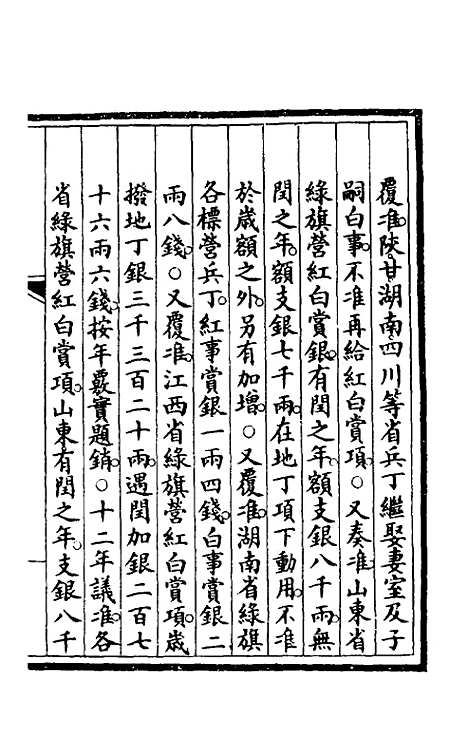 覆准。陝甘湖南四川等省兵丁繼娶妻室及子
嗣白事。不准再給紅白賞項。○又奏准。山東省
綠旗營紅白賞銀。有閏之年。額支銀八千兩。無
閏之年。額支銀七千兩。在地丁項下動用。不准
於歲額之外。另有加增。○又覆准。湖南省綠旗
各標營兵丁。紅事賞銀一兩四錢。白事賞銀二
兩八錢。○又覆准。江西省綠旗營紅白賞項。歲
撥地丁銀三千三百二十兩。遇閏加銀二百七
十六兩六錢。按年覈實題銷。○十二年議准。各
省綠旗營紅白賞項。山東有閏之年。支銀八千